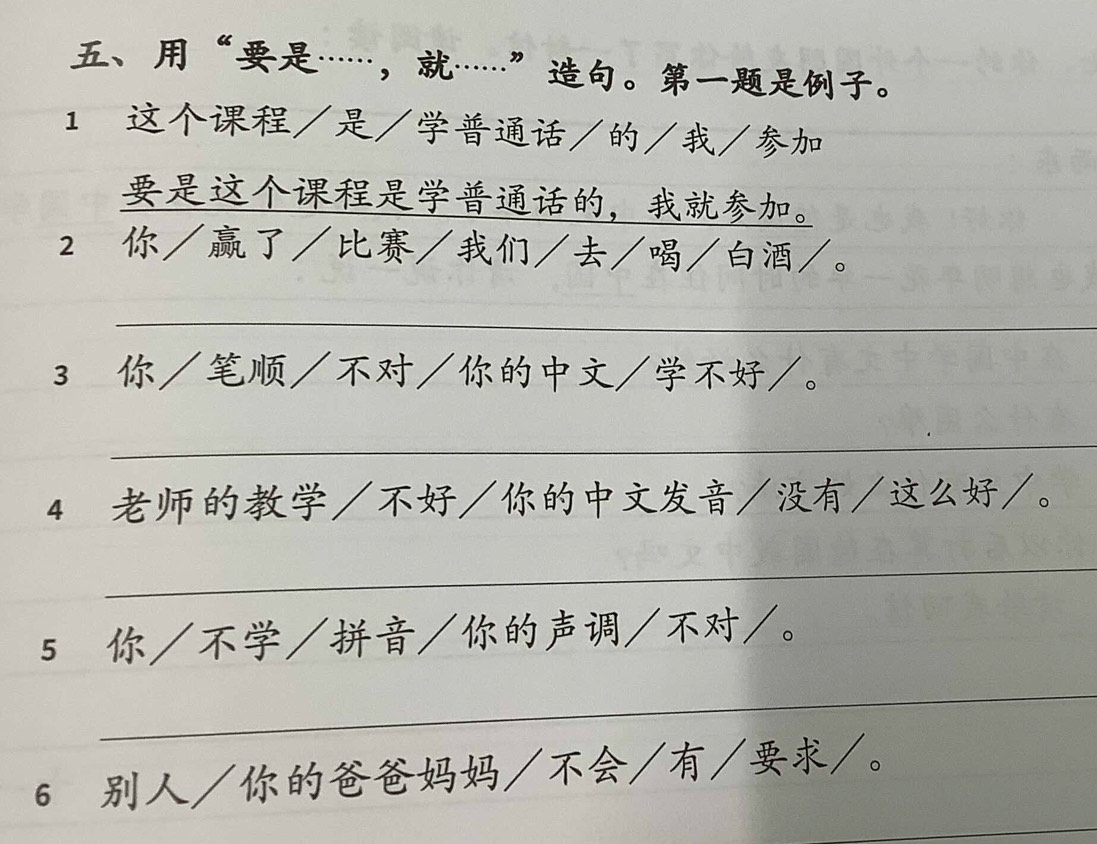 五、用“要是……，就……”造句。第一题是例子。
1 这个课程／是／学普通话／的／我／参加
要是这个课程是学普通话的，我就参加。
2 你／赢了／比赛／我们／去／喝／白酒／。
3 你／笔顺／不对／你的中文／学不好／。
4 老师的教学／不好／你的中文发音／没有／这么好／。
5 你／不学／拼音／你的声调／不对／。
6 别人／你的爸爸妈妈／不会／有／要求／。